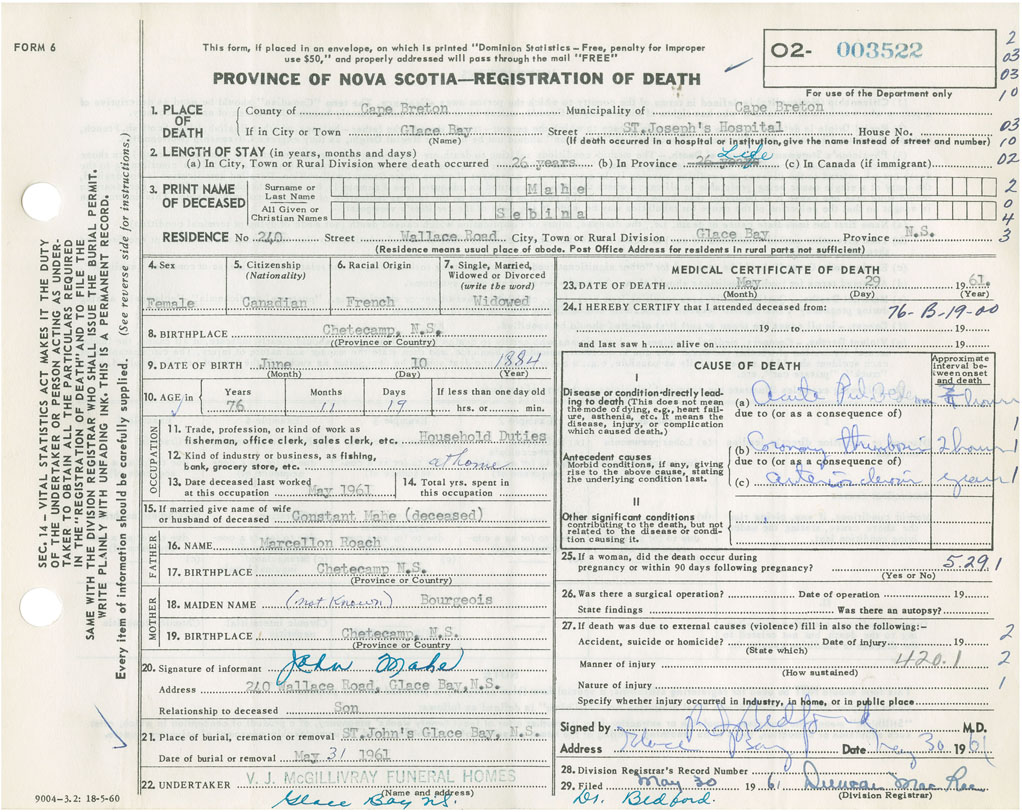 FORM 6
This form, if placed in an envelope, on which is printed "Dominion Statistics – Free, penalty for improper
use $50," and properly addressed will pass through the mail "FREE"
PROVINCE OF NOVA SCOTIA—REGISTRATION OF DEATH
02- 003522
For use of the Department only
2
03
03
10
03
10
02
2
0
4
3
SEC. 14 – VITAL STATISTICS ACT MAKES IT THE DUTY
OF THE UNDERTAKER OR PERSON ACTING AS UNDER-
TAKER TO OBTAIN ALL THE PARTICULARS REQUIRED
IN THE "REGISTRATION OF DEATH" AND TO FILE THE
SAME WITH THE DIVISION REGISTRAR WHO SHALL ISSUE THE BURIAL PERMIT.
WRITE PLAINLY WITH UNFADING INK. THIS IS A PERMANENT RECORD.
Every item of information should be carefully supplied. (See reverse side for instructions.
1. PLACE OF DEATH
County of Cape Breton Municipality of Cape Breton
If in City or Town Glace Bay Street ST.Joseph's Hospital House No.
(Name) (If death occurred in a hospital or institution, give the name instead of street and number)
2. LENGTH OF STAY (in years, months and days)
(a) In City, Town or Rural Division where death occurred 26 years (b) In Province 26 years Life (c) In Canada (if immigrant)
3. PRINT NAME OF DECEASED
Surname or Last Name Mahe
All Given or Christian Names Sebina
RESIDENCE No 240 Street Wallace Road City, Town or Rural Division Glace Bay Province N.S.
(Residence means usual place of abode. Post Office Address for residents in rural parts not sufficient)
4. Sex
Female
5. Citizenship (Nationality)
Canadian
6. Racial Origin
French
7. Single, Married, Widowed or Divorced (write the word)
Widowed
8. BIRTHPLACE Chetecamp, N.S.
((Province or Country)
9. DATE OF BIRTH June 10 1884
(Month) (Day) (Year)
10. AGE in Years Months Days If less than one day old
76 11 19 hrs. or min.
OCCUPATION
11. Trade, profession, or kind of work as
fisherman, office clerk, sales clerk, etc. Household Duties
12. Kind of industry or business, as fishing,
bank, grocery store, etc. at home
13. Date deceased last worked
at this occupation May 1961
14. Total yrs. spent in
this occupation
15. If married give name of wife
or husband of deceased Constant Mahe (deceased)
FATHER
16. NAME Marcellon Roach
17. BIRTHPLACE Chetecamp N.S.
(Province or Country)
MOTHER
18. MAIDEN NAME (not known) Bourgeois
19. BIRTHPLACE Chetecamp, N.S.
(Province or Country
20. Signature of informant John Mahe
Address 240 Wallace Road, Glace Bay, N.S.
Relationship to deceased Son
21. Place of burial, cremation or removal ST.John's Glace Bay, N.S.
Date of burial or removal May 31 1961
22. UNDERTAKER V. J. McGILLIVRAY FUNERAL HOMES
(Name and address)
Glace Bay N.S.
9004-3.2: 18-5-60
MEDICAL CERTIFICATE OF DEATH
23. DATE OF DEATH May 29 1961.
(Month) (Day) (Year)
24. I HEREBY CERTIFY that I attended deceased from:
76-B-19-00
19 to 19
and last saw h alive on 19
CAUSE OF DEATH
Approximate interval between onset and death
I
Disease or condition directly lead-
ing to death (This does not mean
the mode of dying, e.g., heart fail-
ure, asthenia, etc. It means the
disease, injury, or complication
which caused death.)
(a) Acute
due to (or as a consequence of)
Antecedent causes
Morbid conditions, if any, giving
rise to the above cause, stating
the underlying condition last.
(b) Coronary thrombosis 2 hours
due to (or as a consequence of)
(c) years
1
1
1
II
Other significant conditions
contributing to the death, but not
related to the disease or condi-
tion causing it.
25. If a woman, did the death occur during
pregnancy or within 90 days following pregnancy? 5.29.1
(Yes or No)
26. Was there a surgical operation? Date of operation 19
State findings Was there an autopsy?
27. If death was due to external causes (violence) fill in also the following:–
Accident, suicide or homicide? Date of injury 19
(State which)
Manner of injury 420.1
(How sustained)
Nature of injury
Specify whether injury occurred in industry, in home, or in public place
2
2
1
Signed by Bedford M.D.
Address Glace Bay Date May 30 1961
28. Division Registrar's Record Number
29. Filed May 30 1961 Duncan Mac Rae
(Division Registrar)
Dr. Bedford.